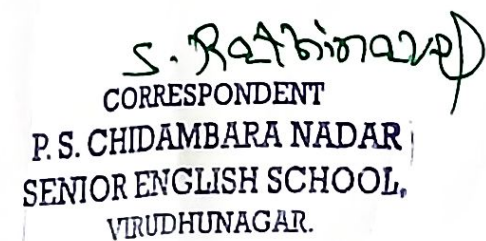 S. Rathinavel
CORRESPONDENT
P. S. CHIDAMBARA NADAR
SENIOR ENGLISH SCHOOL,
VIRUDHUNAGAR.